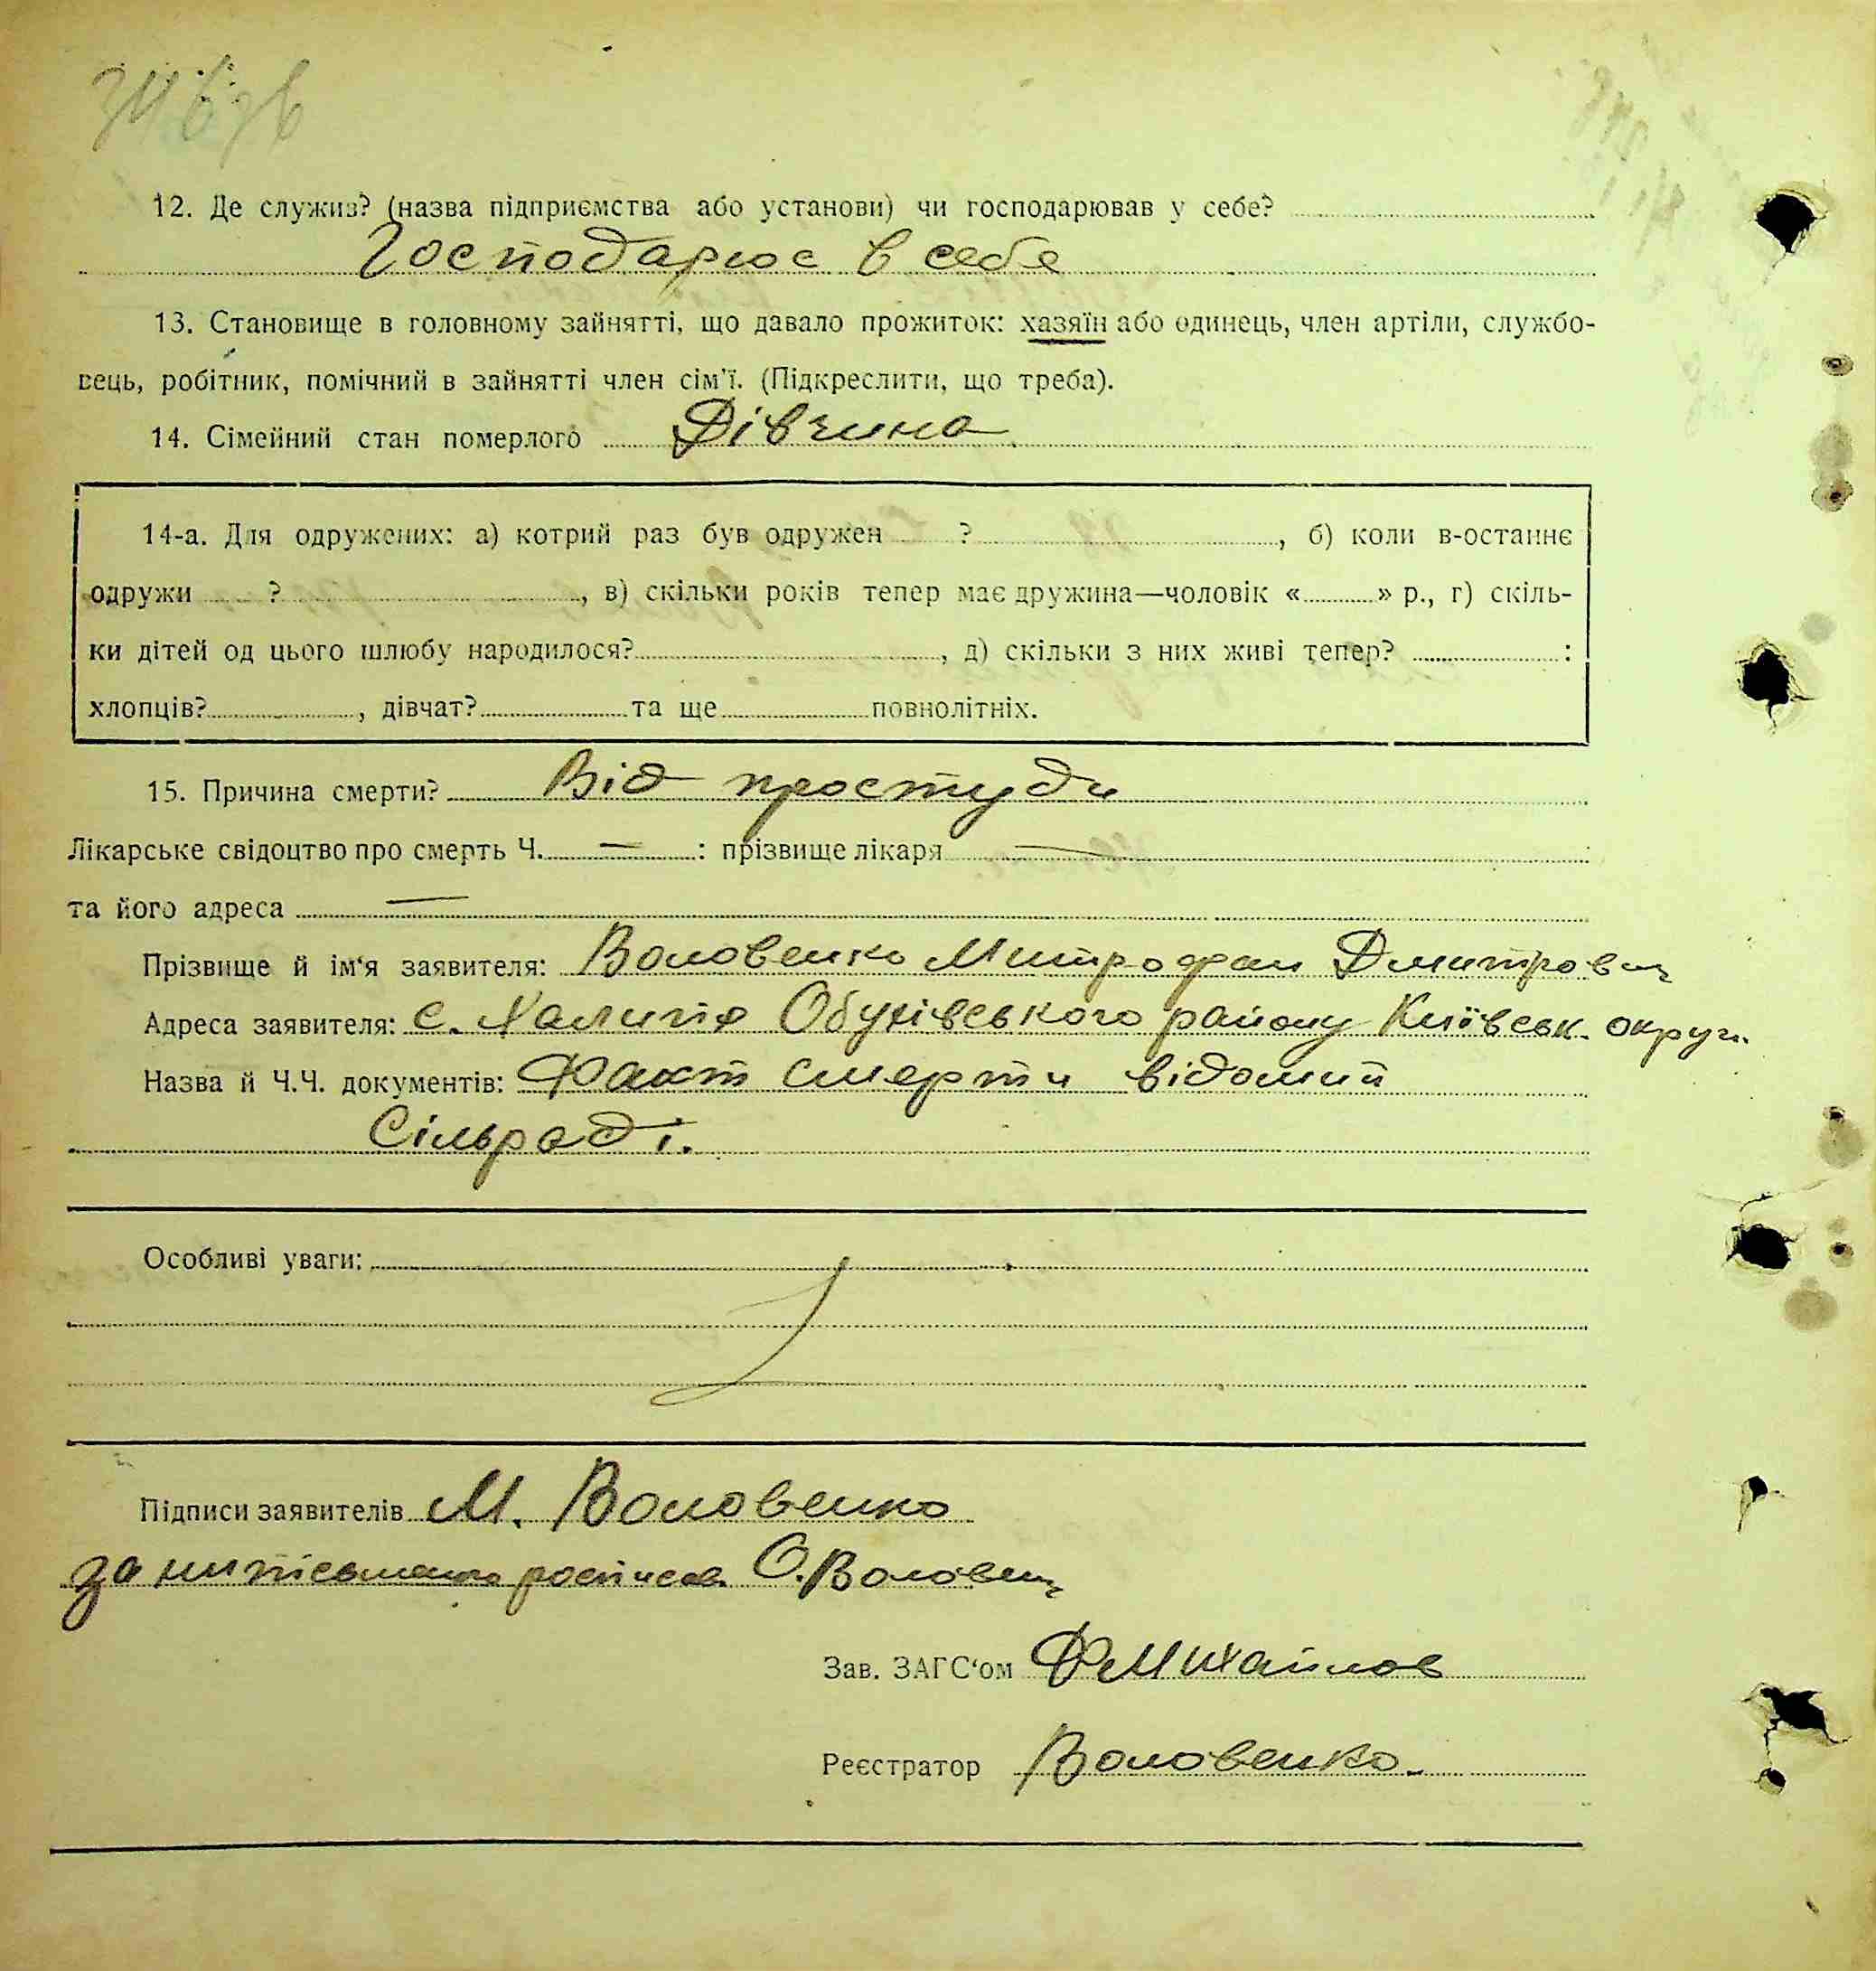 12. Де служив? (назва підприємства або установи) чи господарював у себе?
Господарює в себе
13. Становище в головному зайнятті, що давало прожиток: хазяїн або одинець, член артіли, службо-
вець, робітник, помічний в зайнятті член сім'ї. (Підкреслити, що треба).
14. Сімейний стан померлого Дівчина
14-а. Для одружених: а) котрий раз був одружен ? , б) коли в-останнє
одружи ? , в) скільки років тепер має дружина—чоловік « » р., г) скіль-
ки дітей од цього шлюбу народилося? , д) скільки з них живі тепер? :
хлопців? , дівчат? та ще повнолітніх.
15. Причина смерти? Від простуди
Лікарське свідоцтво про смерть Ч. — : прізвище лікаря —
та його адреса —
Прізвище й ім'я заявителя: Воловенко Митрофан Дмитрович
Адреса заявителя: с. Халипя Обухівського району Київськ. округи.
Назва й Ч.Ч. документів: Факт смерти відомий
Сільраді.
Особливі уваги:
Підписи заявителів М. Воловенко
за О. Воловенк
Зав. ЗАГС'ом ФМихайлов
Реєстратор Воловенко.